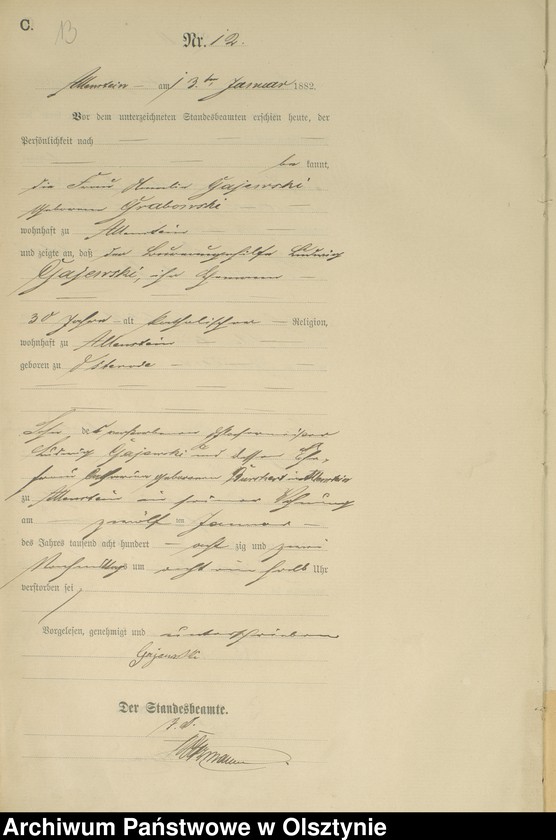 C.
13
Nr. 12.
Allenstein am 13ten Januar 1882.
Vor dem unterzeichneten Standesbeamten erschien heute, der
Persönlichkeit nach
be kannt,
die Frau Amalie Gajewski
geborene Grabowski
wohnhaft zu Allenstein
und zeigte an, daß der Ludwig
Gajewski, ihr
30 Jahre alt katholischer Religion,
wohnhaft zu Allenstein
geboren zu Osterode
Sohn des verstorbenen
Ludwig Gajewski und dessen Ehe-
frau geborenen
zu Allenstein in seiner Wohnung
am zwölf ten Januar
des Jahres tausend acht hundert acht zig und zwei
Nachmittags um acht ein halb Uhr
verstorben sei
Vorgelesen, genehmigt und unterschrieben
Gajewski
Der Standesbeamte.
Archiwum Państwowe w Olsztynie